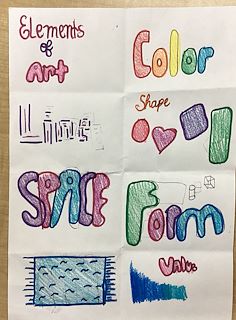 Elements
of
Art
Color
Lines
Shape
SPACE
Form
Value